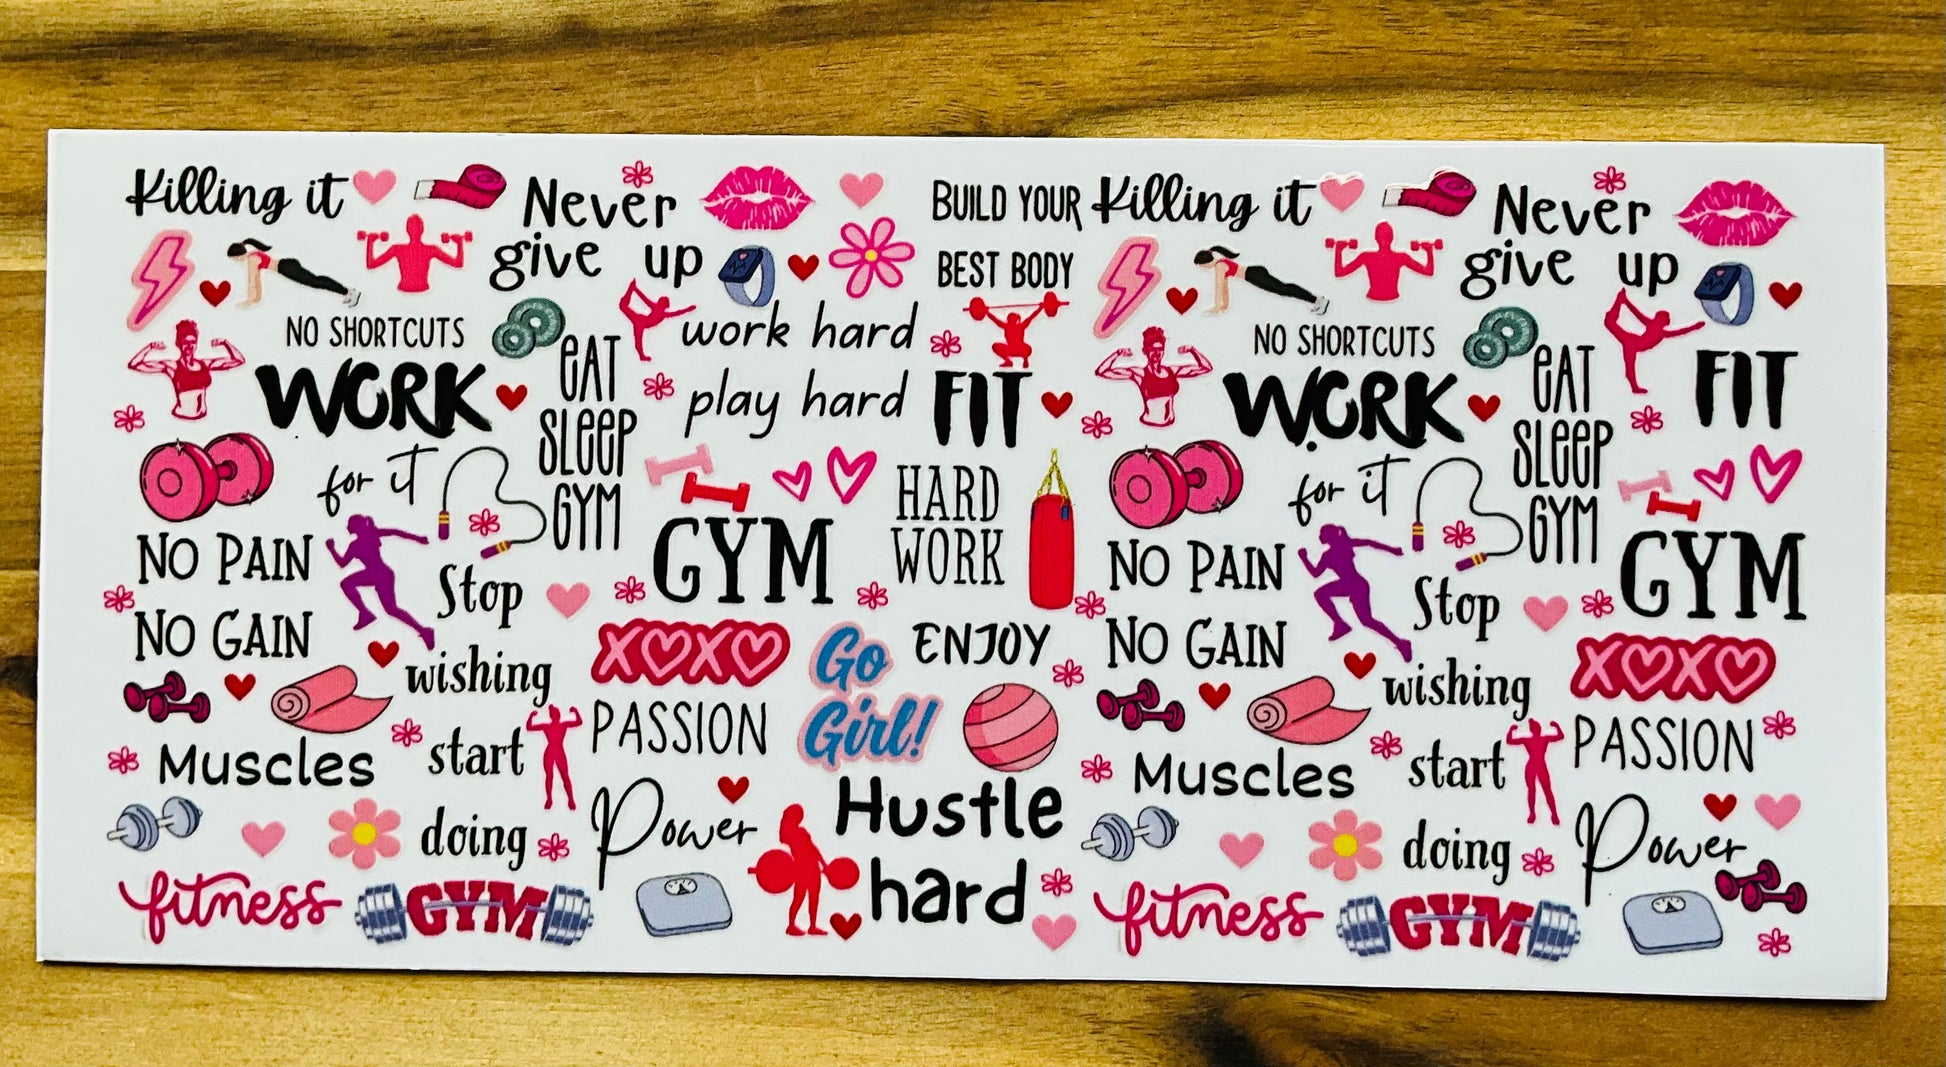 Killing it
Never
give up
BUILD YOUR
BEST BODY
NO SHORTCUTS
WORK
for it
EAT
SLEEP
GYM
work hard
play hard
FIT
NO PAIN
NO GAIN
Stop
wishing
start
doing
GYM
HARD
WORK
XOXO
Go
Girl!
ENJOY
PASSION
Muscles
Power
Hustle
hard
fitness
GYM
Killing it
Never
give up
NO SHORTCUTS
WORK
for it
EAT
SLEEP
GYM
FIT
NO PAIN
NO GAIN
Stop
wishing
start
doing
GYM
XOXO
PASSION
Muscles
Power
fitness
GYM